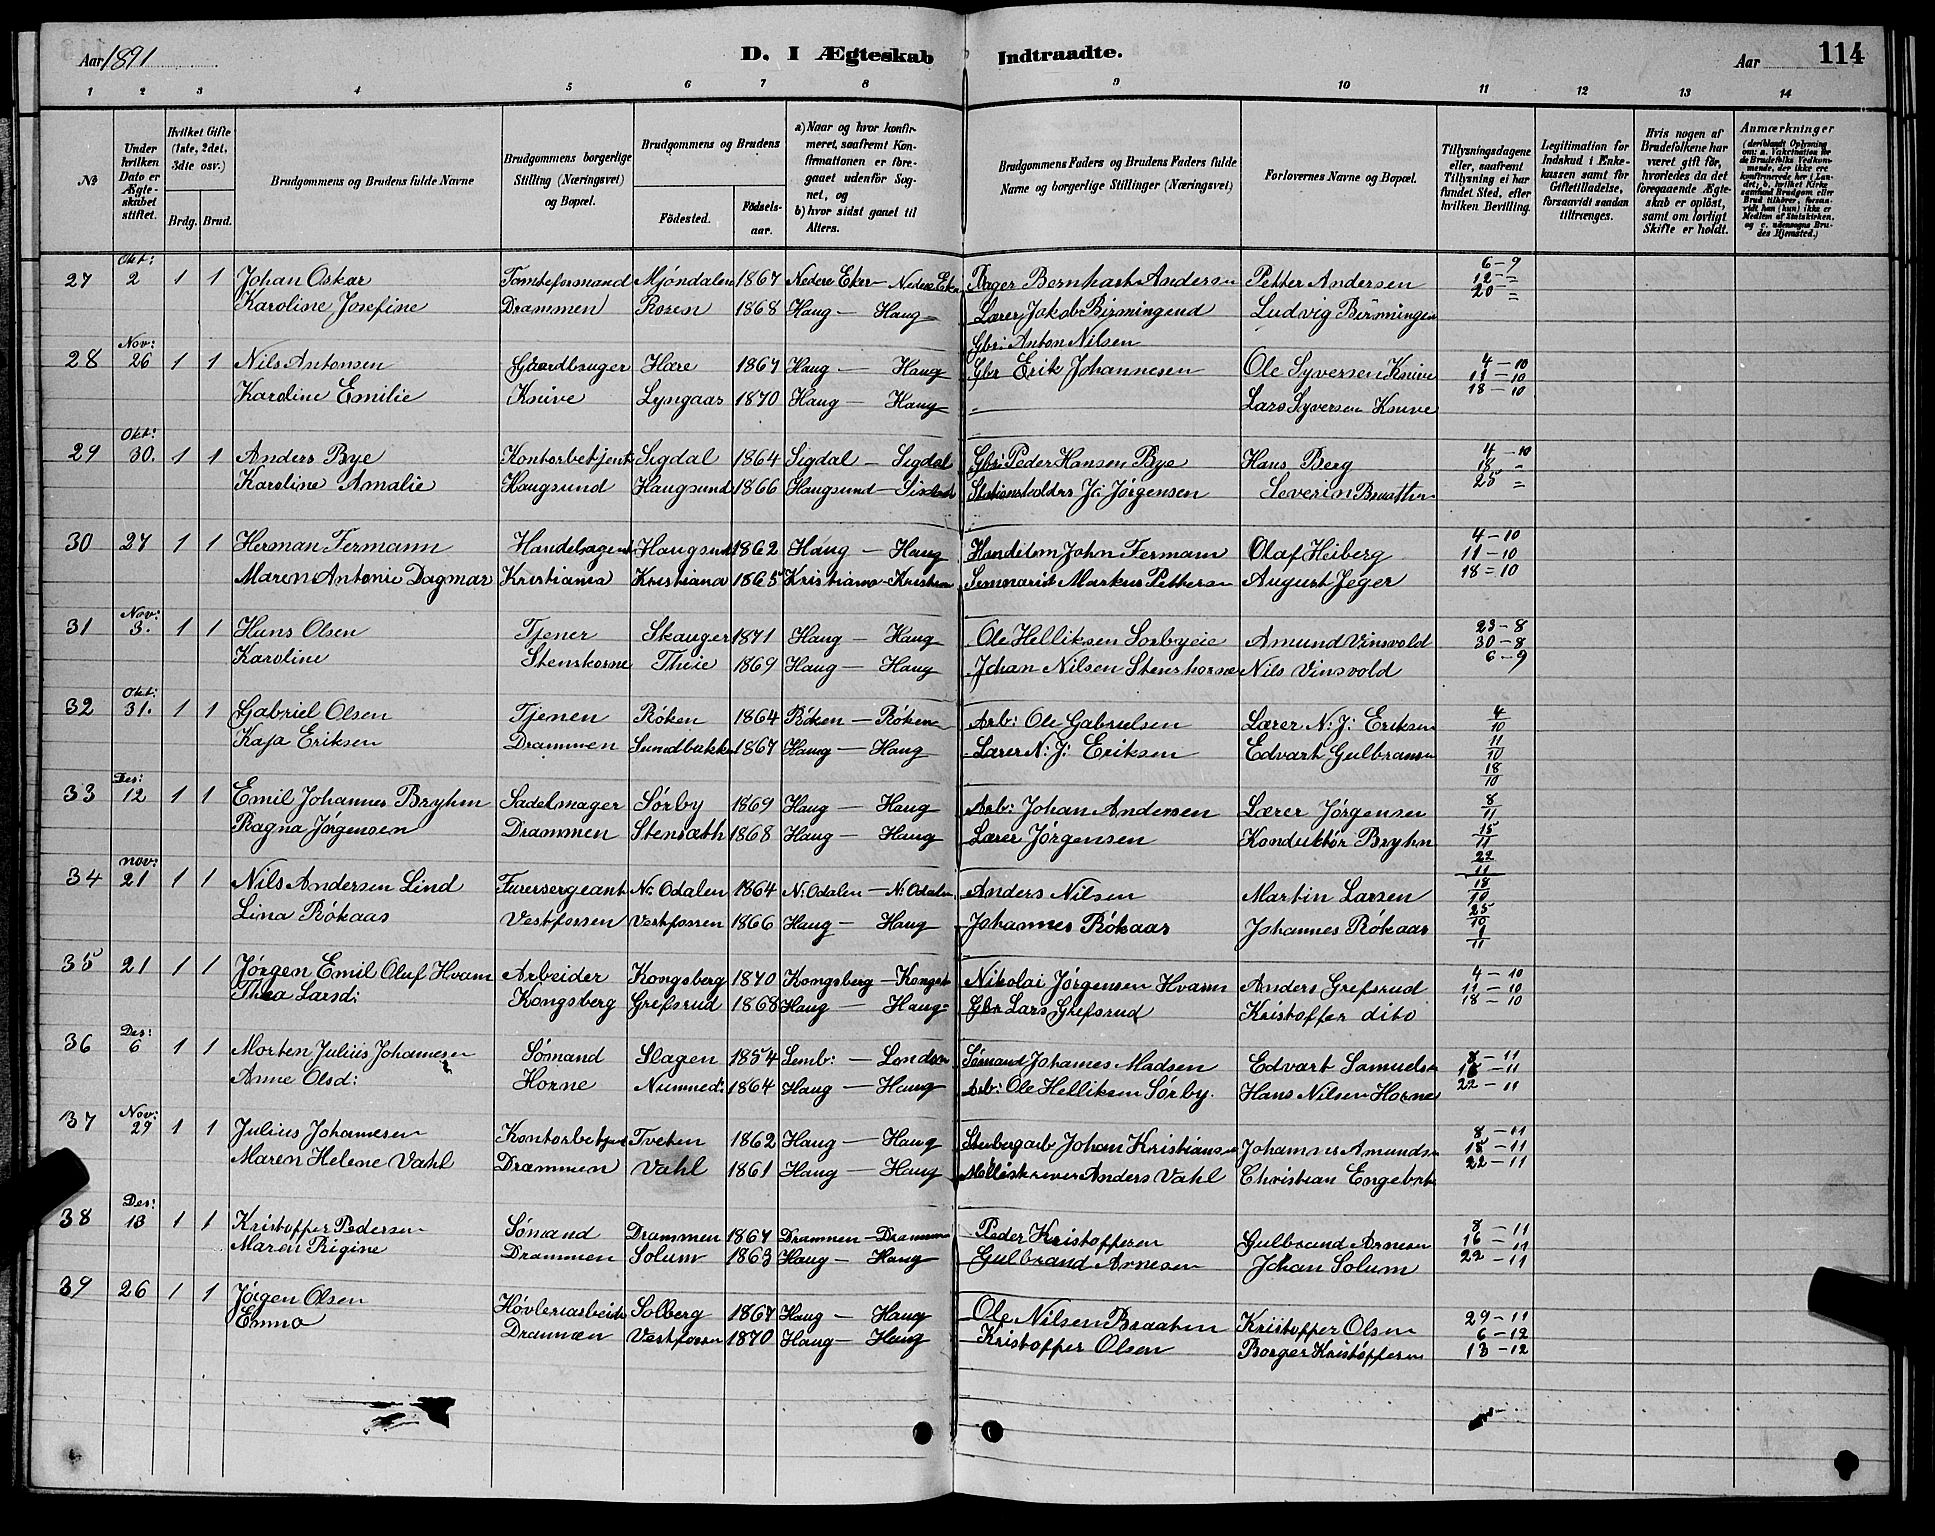 Aar 1891
D. I Ægteskab Indtraadte.
Aar 114
1 2 3 4 5 6 7 8 9 10 11 12 13 14
№
Under hvilken Dato er Ægteskabet stiftet.
Hvilket Gifte (1ste, 2det, 3die osv.)
Brdg. Brud.
Brudgommens og Brudens fulde Navne
Brudgommens borgerlige Stilling (Næringsvei) og Bopæl.
Brudgommens og Brudens
Fødested. Fødselsaar.
a) Naar og hvor konfirmeret, saafremt Konfirmationen er foregaaet udenfor Sognet, og
b) hvor sidst gaaet til Alters.
Brudgommens Faders og Brudens Faders fulde Navne og borgerlige Stillinger (Næringsvei)
Forlovernes Navne og Bopæl.
Tillysningsdagene eller, saafremt Tillysning ei har fundet Sted, efter hvilken Bevilling.
Legitimation for Indskud i Enkekassen samt for Giftetilladelse, forsaavidt saadan tiltrænges.
Hvis nogen af Brudefolkene har været gift før, hvorledes da det foregaaende Ægteskab er opløst, samt om lovligt Skifte er holdt.
Anmærkninger (deriblandt Oplysning om: a. Vakcination for de Brudefolks Vedkommende, der ikke ere konfirmerede her i Landet; b. hvilket Kirkesamfund Brudgom eller Brud tilhører, forsaavidt han (hun) ikke er Medlem af Statskirken, og c. udensogns Brudes Hjemsted.)
27 Okt: 2 1 1 Johan Oskar Tomteformand Mjøndalen 1867 Nedere Eker — Nedere Eker Bager Bernhart Andersen Petter Andersen 6-9 12-" 20 "
Karoline Josefine Drammen Rosen 1868 Haug — Haug Lærer Jakob Birmingend Ludvig Birmingen
Gbr: Anton Nilsen
28 Nov: 26 1 1 Nils Antonsen Gaardbruger Hære 1867 Haug — Haug Gbr Erik Johannesen Ole Syversen Knive 4-10 11-10 18-10
Karoline Emilie Knive Lyngaas 1870 Haug — Haug Lars Syversen Knive
29 Okt: 30. 1 1 Anders Bye Kontorbetjent Sigdal 1864 Sigdal — Sigdal Gbr: Peder Hansen Bye Hans Berg 4-10 18 " 25 "
Karoline Amalie Haugsund Haugsund 1866 Haugsund — Stationsholder J: Jørgensen Severin Braathen
30 27 1 1 Herman Fermann Handelsagent Haugsund 1862 Haug — Haug John Fermann Olaf Heiberg 4-10 11-10 18-10
Maren Antonie Dagmar Kristiania Kristiania 1865 Kristiania - Kristiania Seminarist Markus Pettersen August Jeger
31 Nov: 3. 1 1 Hans Olsen Tjener Skauger 1871 Haug — Haug Ole Helliksen Sørbyeie Amund Vinsvold 23-8 30-8 6-9
Karoline Stenshorne Theie 1869 Haug — Haug Johan Nilsen Stenshorne Nils Vinsvold
32 Okt: 31. 1 1 Gabriel Olsen Tjenen Røken 1864 Røken — Røken Arb: Ole Gabrielsen Lærer N: J: Eriksen 4/10 11/10 18/10
Kaja Eriksen Drammen Sundbakken 1867 Haug — Haug Lærer N: J: Eriksen Edvart Gulbransen
33 Des: 12 1 1 Emil Johannes Bryhn Sadelmager Sørby 1869 Haug — Haug Arb: Johan Andersen Lærer Jørgensen 8/11 15/11 22/11
Ragna Jørgensen Drammen Stensæth 1868 Haug — Haug Lærer Jørgensen Konduktør Bryhn
34 nov: 21 1 1 Nils Andersen Lind Furersergeant N: Odalen 1864 N: Odalen — N: Odalen Anders Nilsen Martin Larsen 18/10 25/10 1/11
Lina Røkaas Vestfossen Vestfossen 1866 Haug — Haug Johannes Røkaas Johannes Røkaas
35 21 1 1 Jørgen Emil Oluf Hvam Arbeider Kongsberg 1870 Kongsberg — Kongsb Nikolai Jørgensen Hvam Anders Grefsrud 4-10 11-10 18-10
Thea Larsd: Kongsberg Grefsrud 1868 Haug — Haug Gbr Lars Grefsrud Kristoffer dito
36 Des: 6 1 1 Morten Julius Johannesen Sømand Slagen 1854 Semb: — London Sømand Johannes Madsen Edvart Samuelsen 8-11 15-11 22-11
Anne Olsd: Horne Numned: 1864 Haug — Haug Arb: Ole Helliksen Sørby. Hans Nilsen Horne
37 Nov: 29 1 1 Julius Johannesen Kontorbetjent Tveten 1862 Haug — Haug Johan Kristiansen Johannes Amundsen 8-11 15-11 22-11
Maren Helene Vahl Drammen Vahl 1861 Haug — Haug Anders Vahl Christian Engebret
38 Des: 13 1 1 Kristoffer Pedersen Sømand Drammen 1867 Drammen — Drammen Peder Kristoffersen Gulbrand Arnesen 8-11 16-11 22-11
Maren Rigine Drammen Solum 1863 Haug — Haug Gulbrand Arnesen Johan Solum
39 26 1 1 Jørgen Olsen Høvleriarbeider Solberg 1867 Haug — Haug Ole Nilsen Braaten Kristoffer Olsen 29-11 6-12 13-12
Emma Drammen Vestfossen 1870 Haug — Haug Kristoffer Olsen Borger Kristoffersen